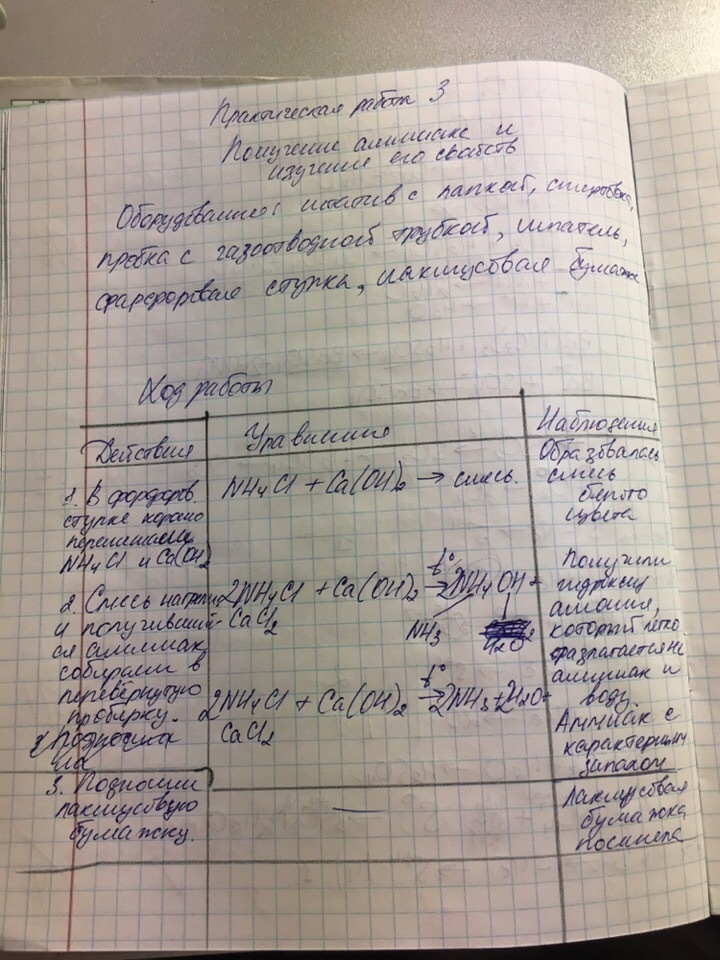 Практическая работа 3
Получение аммиака и
изучение его свойств
Оборудование: штатив с лапкой, спиртовка,
пробка с газоотводной трубкой, шпатель,
фарфоровая ступка, лакмусовая бумажка
Ход работы
Действия
Уравнение
Наблюдения
1. В фарфоров.
ступке хорошо
перемешали
NH4Cl и Ca(OH)2
NH4Cl + Ca(OH)2 → смесь.
Образовалась
смесь
белого
цвета
2. Смесь нагрели
и получивший-
ся аммиак
собирали в
перевёрнутую
пробирку.
2NH4Cl + Ca(OH)2 t° → 2NH4OH +
CaCl2
NH3 H2O
2NH4Cl + Ca(OH)2 t° → 2NH3 + 2H2O +
CaCl2
Получили
гидроксид
амония,
который легко
разлагается на
аммиак и
воду
Аммиак с
характерным
запахом
3. Подносим
лакмусовую
бумажку.
—
Лакмусовая
бумажка
посинела